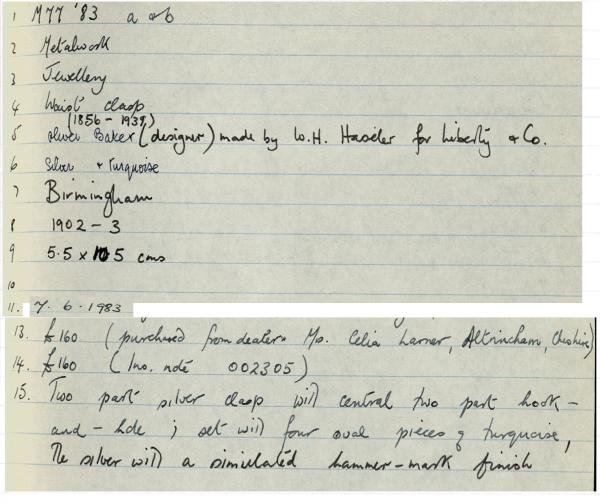 1 M77 '83 a & b
2 Metalwork
3 Jewellery
4 Waist clasp
(1856 - 1939)
5 Oliver Baker (designer) made by W.H. Haseler for Liberty & Co.
6 Silver + turquoise
7 Birmingham
8 1902 - 3
9 5.5 x 10 5 cms
10
11. 7. 6. 1983
13. £160 (purchased from dealer Ms. Celia Larner, Altrincham, Cheshire)
14. £160 (Inv. note 002305)
15. Two part silver clasp with central two part hook -
and - hole ; set with four oval pieces of turquoise,
The silver with a simulated hammer-mark finish